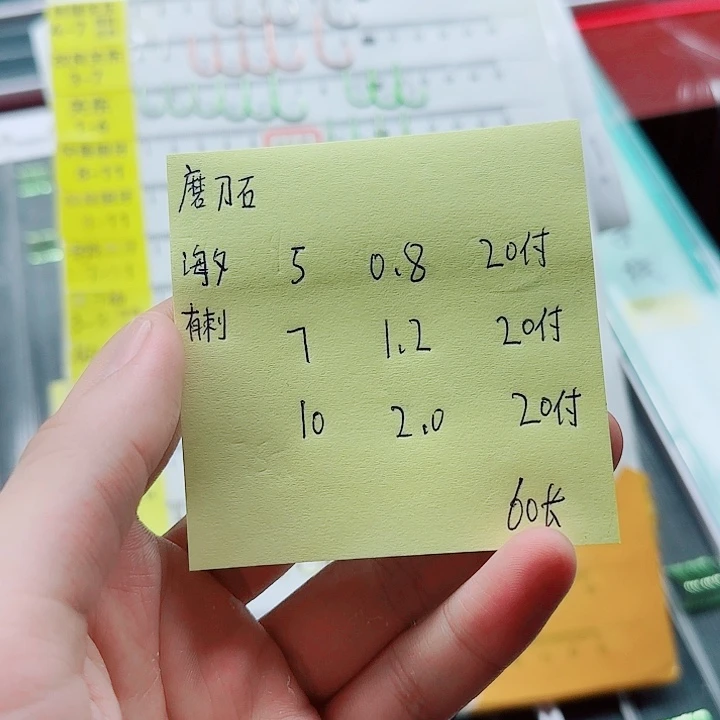 磨刀石
海夕 5 0.8 20付
有刺 7 1.2 20付
10 2.0 20付
60长